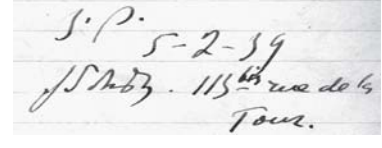 J. P.
5-2-39
115 bis rue de la
Tour.